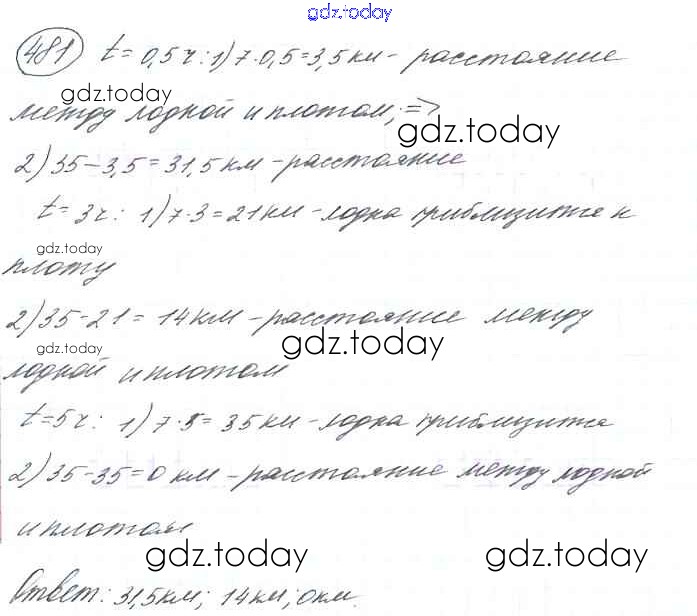 gdz.today
481 t=0,5ч: 1) 7·0,5=3,5 км - расстояние
gdz.today
между лодкой и плотом, =>
gdz.today
2) 35-3,5=31,5 км - расстояние
t=3ч: 1) 7·3=21 км - лодка приблизится к
gdz.today
плоту
2) 35-21=14 км - расстояние между
gdz.today
gdz.today
лодкой и плотом
t=5ч: 1) 7·5=35 км - лодка приблизится
2) 35-35=0 км - расстояние между лодкой
и плотом
gdz.today
gdz.today
Ответ: 31,5 км; 14 км; 0 км.